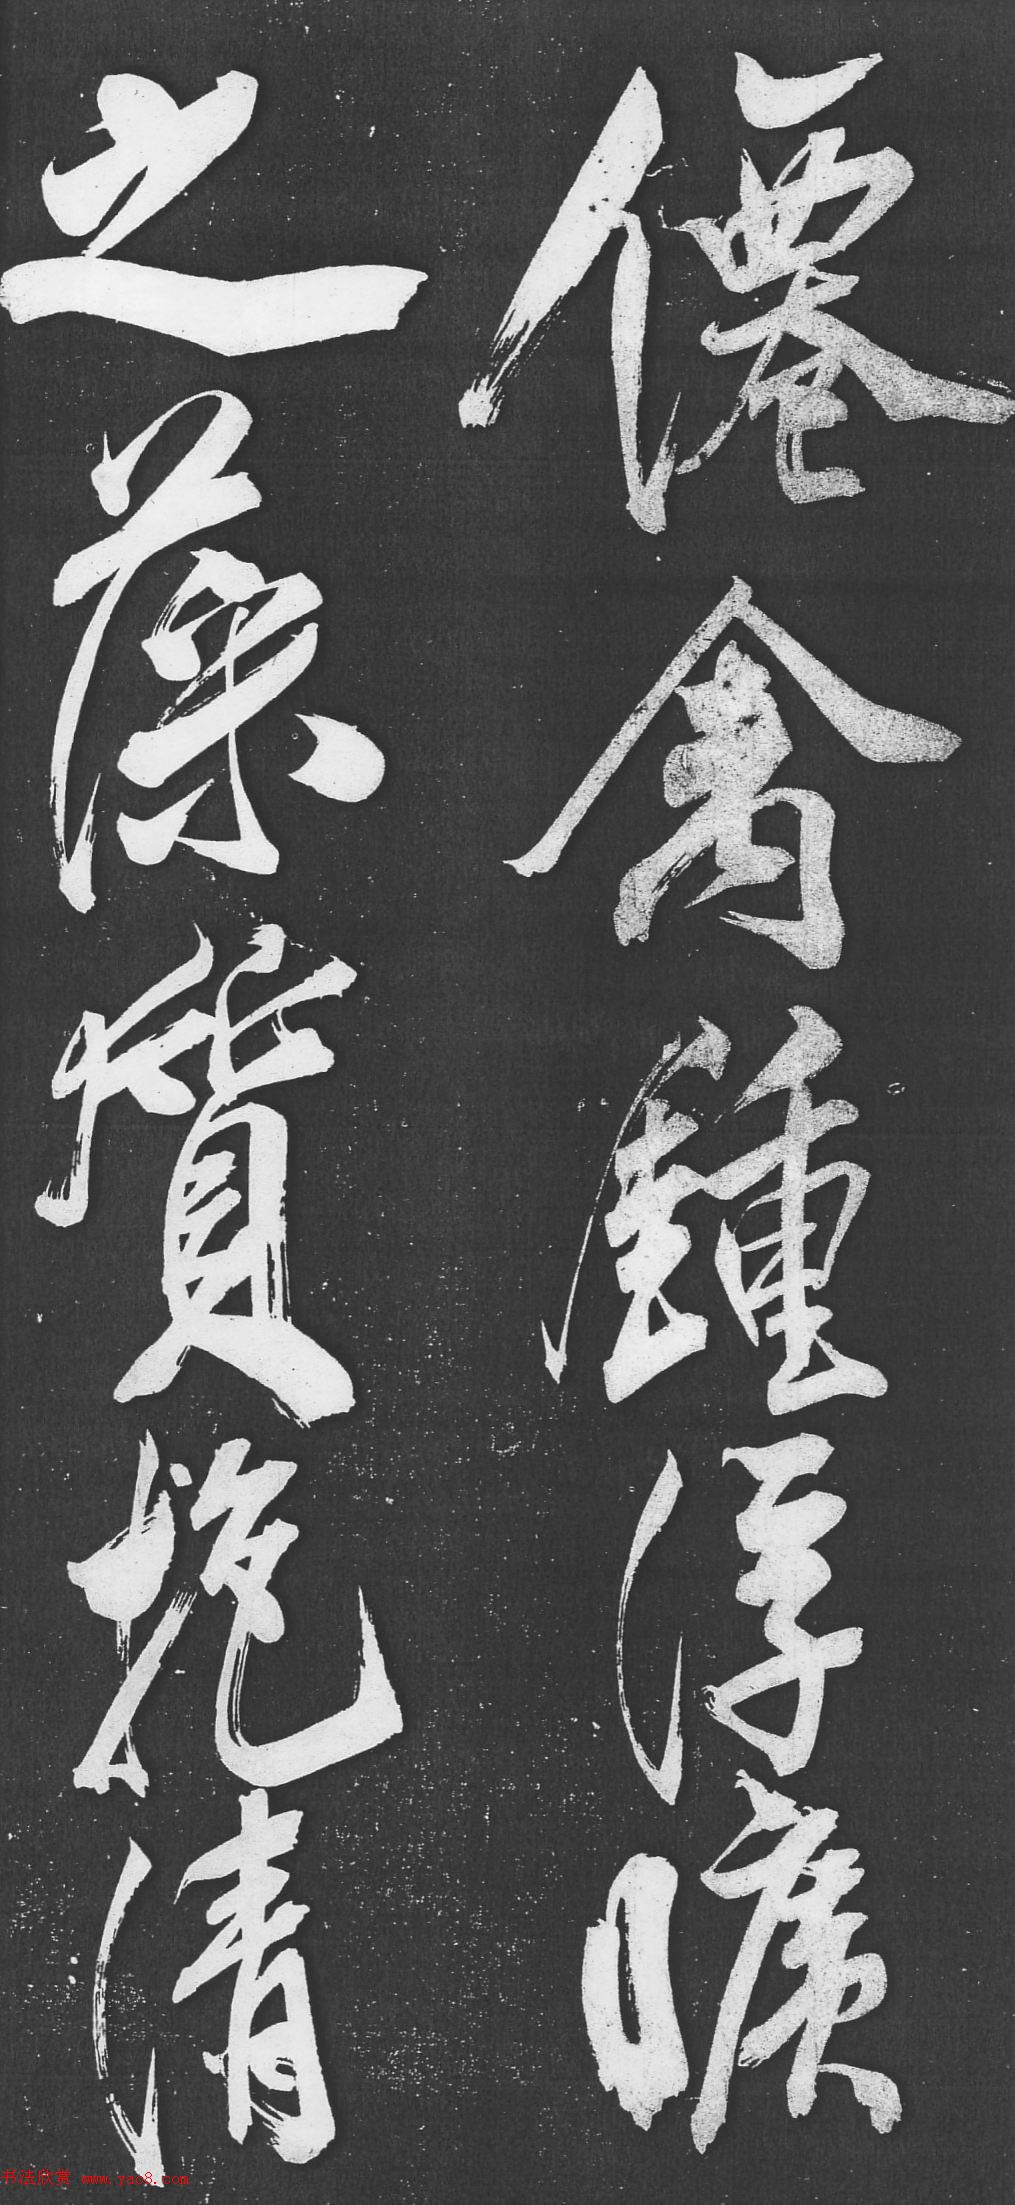 僊禽鍾浮曠
之藻質抱清
书法欣赏 www.yac8.com